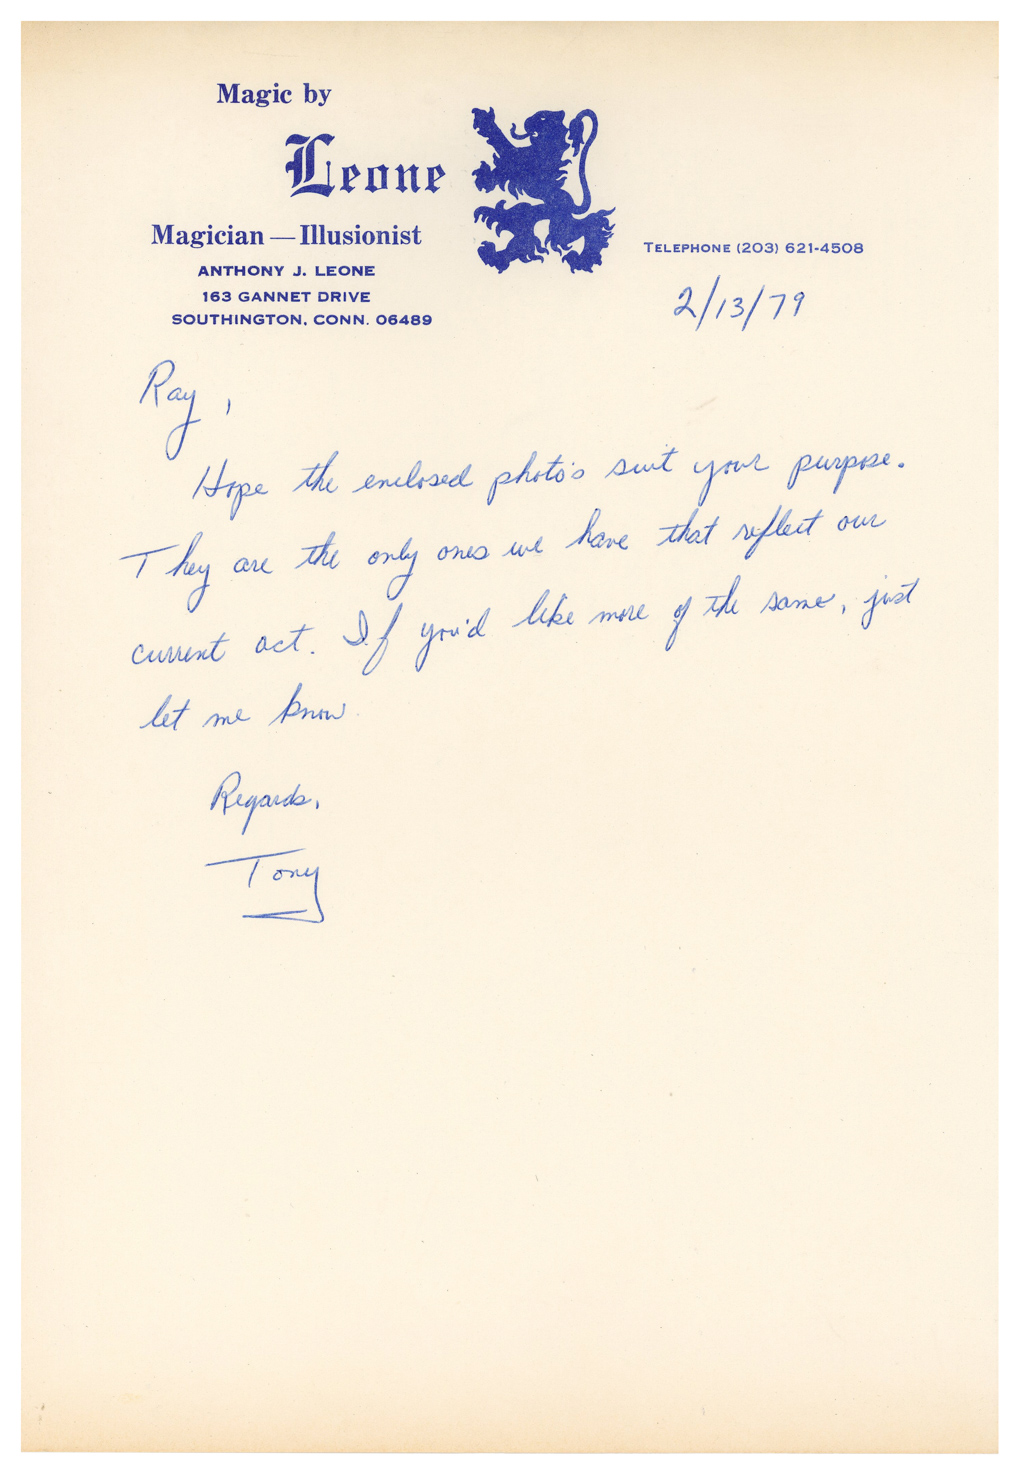 Magic by
Leone
Magician — Illusionist
ANTHONY J. LEONE
163 GANNET DRIVE
SOUTHINGTON, CONN. 06489
TELEPHONE (203) 621-4508
2/13/79
Ray,
Hope the enclosed photo's suit your purpose.
They are the only ones we have that reflect our
current act. If you'd like more of the same, just
let me know.
Regards,
Tony